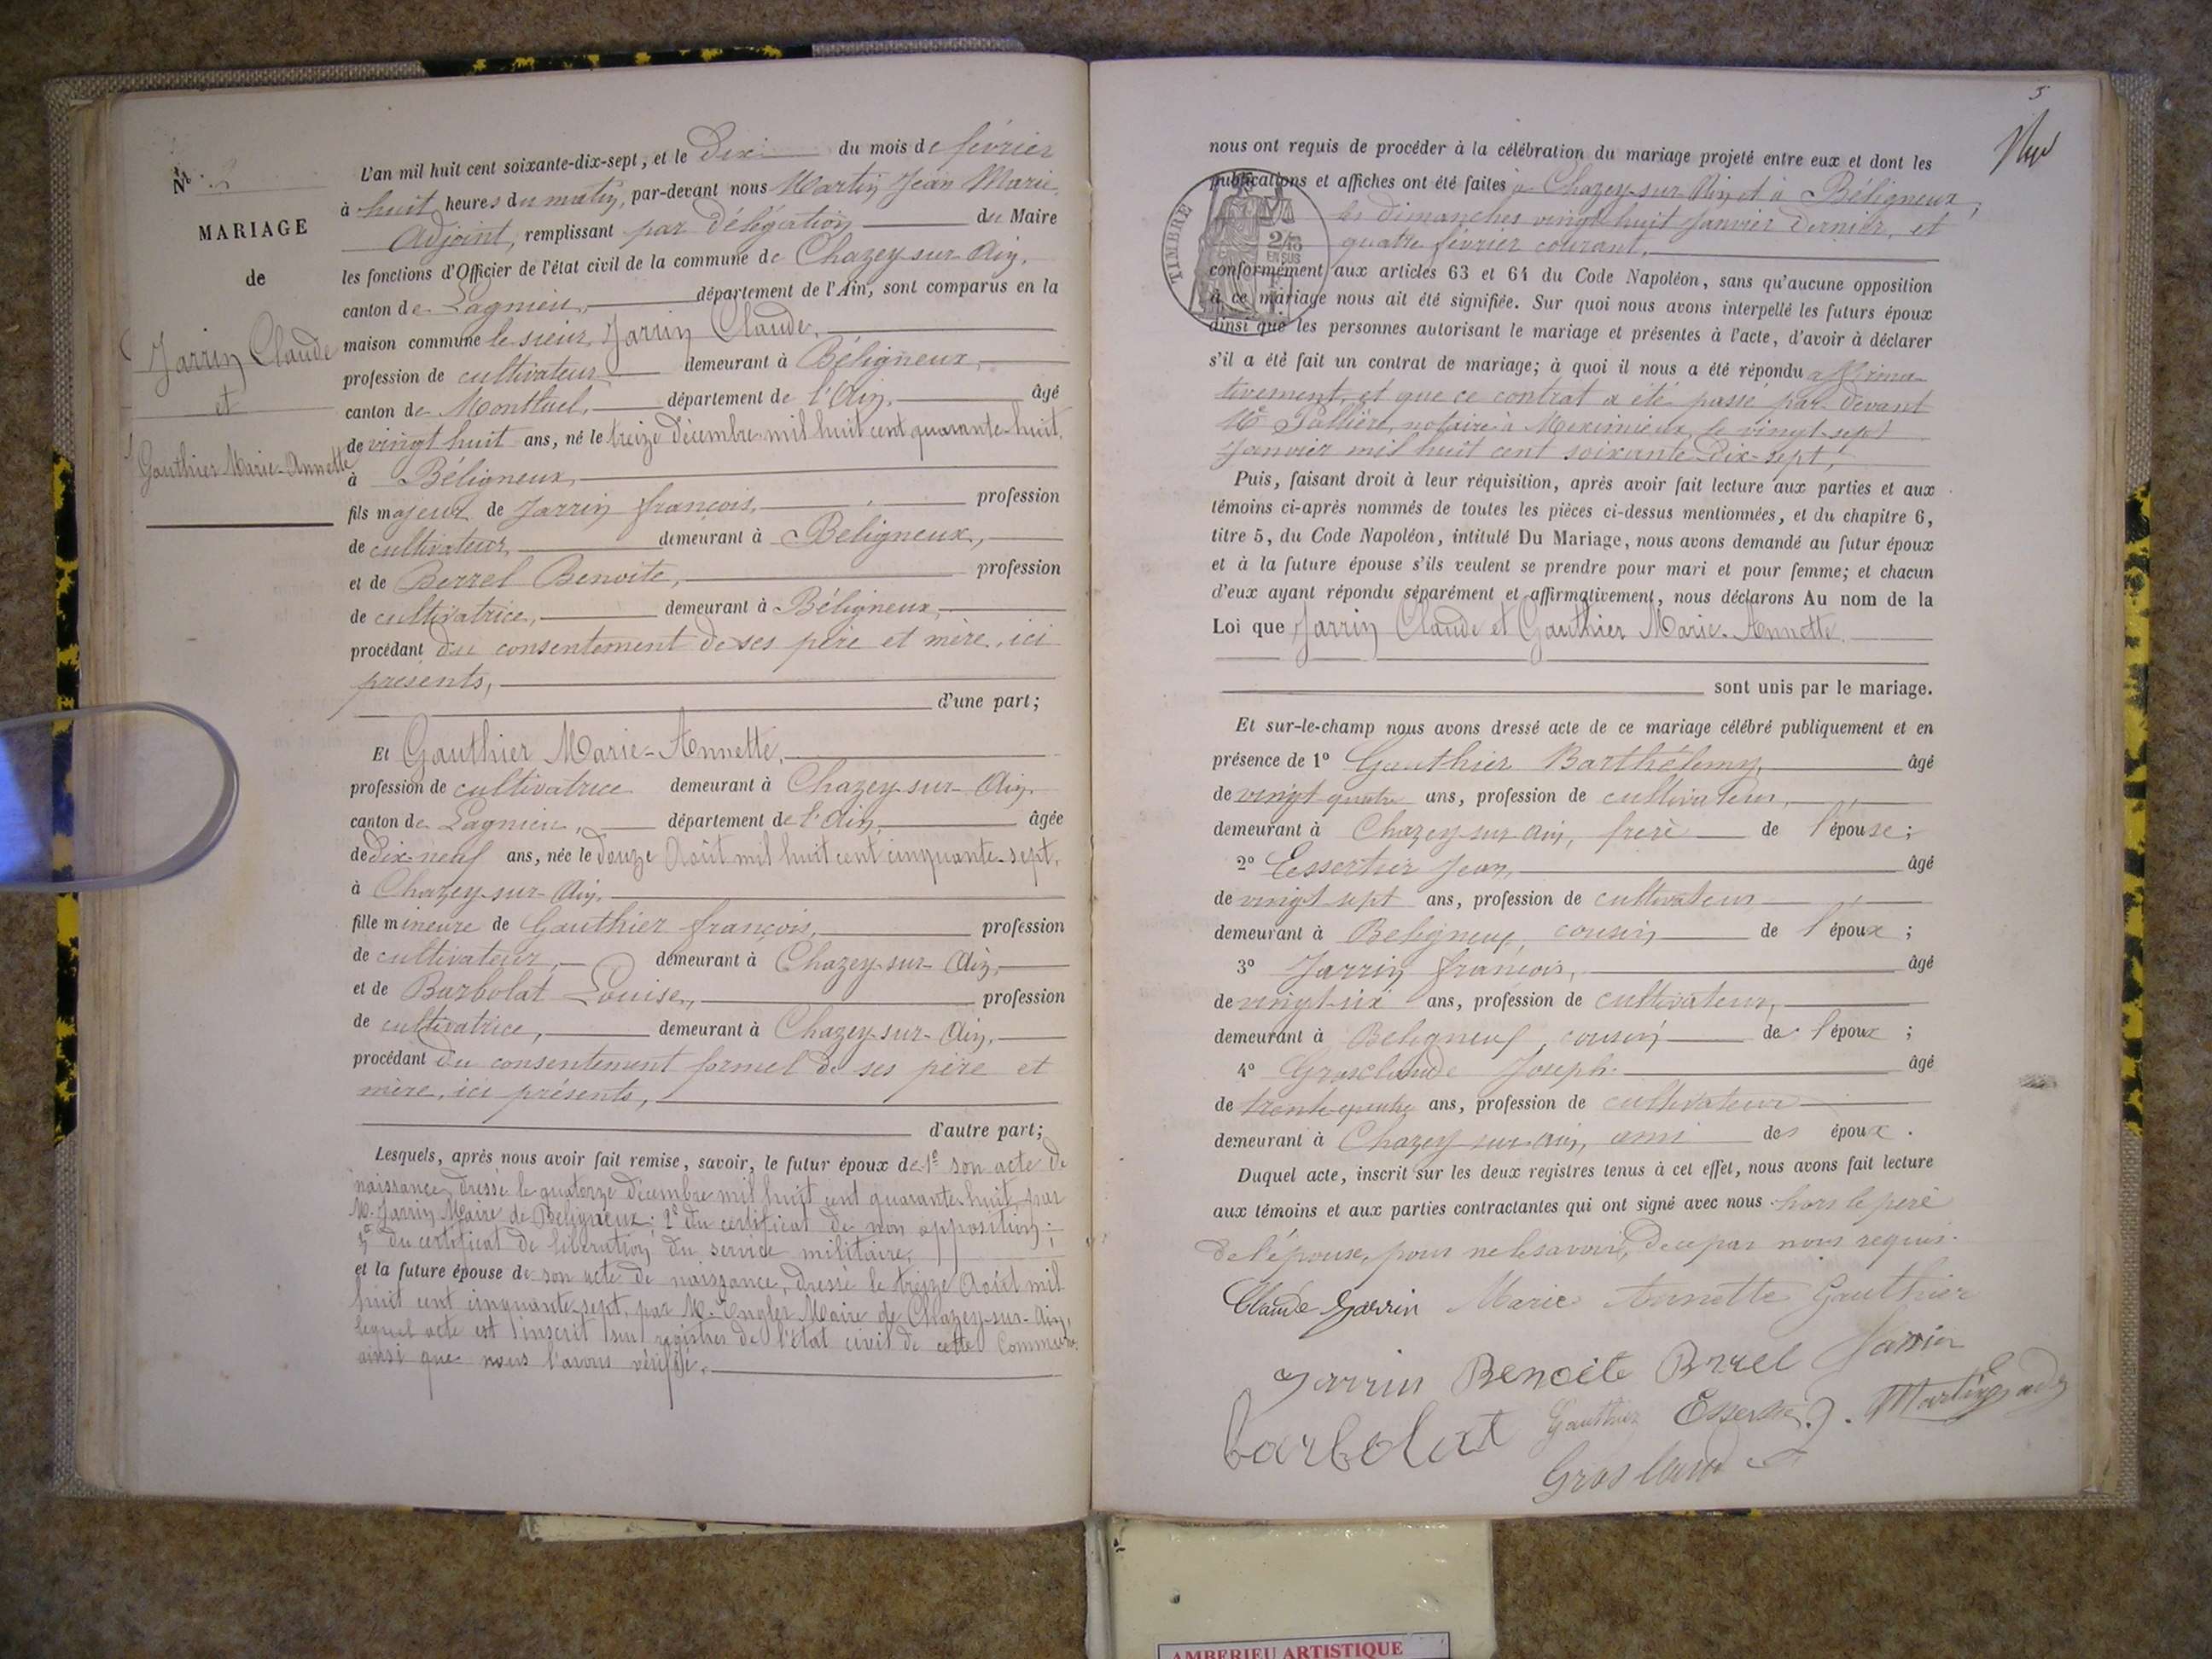 Nº 2
MARIAGE
de
Jarrin Claude
et
Gauthier Marie-Annette
L'an mil huit cent soixante-dix-sept, et le dix du mois de février
à huit heures du matin, par-devant nous Martin Jean Marie,
Adjoint, remplissant par délégation du Maire
les fonctions d'Officier de l'état civil de la commune de Chazey-sur-Ain,
canton de Lagnieu, département de l'Ain, sont comparus en la
maison commune le sieur Jarrin Claude,
profession de cultivateur, demeurant à Béligneux,
canton de Montluel, département de l'Ain, âgé
de vingt huit ans, né le treize décembre mil huit cent quarante-huit,
à Béligneux,
fils majeur de Jarrin françois, profession
de cultivateur, demeurant à Béligneux,
et de Berrel Benoite, profession
de cultivatrice, demeurant à Béligneux,
procédant du consentement de ses père et mère, ici
présents,
d'une part;
Et Gauthier Marie-Annette,
profession de cultivatrice demeurant à Chazey-sur-Ain,
canton de Lagnieu, département de l'Ain, âgée
de dix-neuf ans, née le douze Août mil huit cent cinquante-sept,
à Chazey-sur-Ain,
fille mineure de Gauthier françois, profession
de cultivateur, demeurant à Chazey-sur-Ain,
et de Barbolat Louise, profession
de cultivatrice, demeurant à Chazey-sur-Ain,
procédant du consentement formel de ses père et
mère, ici présents,
d'autre part;
Lesquels, après nous avoir fait remise, savoir, le futur époux de 1º son acte de
naissance, dressé le quatorze décembre mil huit cent quarante-huit, par
M. Jarrin Maire de Béligneux; 2º du certificat de non opposition;
3º du certificat de libération du service militaire;
et la future épouse de son acte de naissance, dressé le treize Août mil
huit cent cinquante-sept, par M. Engler Maire de Chazey-sur-Ain,
lequel acte est inscrit sur registres de l'état civil de cette Commune,
ainsi que nous l'avons vérifié.
5
nous ont requis de procéder à la célébration du mariage projeté entre eux et dont les
publications et affiches ont été faites à Chazey-sur-Ain et à Béligneux,
les dimanches vingt huit Janvier dernier, et
quatre février courant,
TIMBRE
2/10
EN SUS
conformément aux articles 63 et 64 du Code Napoléon, sans qu'aucune opposition
à ce mariage nous ait été signifiée. Sur quoi nous avons interpellé les futurs époux
ainsi que les personnes autorisant le mariage et présentes à l'acte, d'avoir à déclarer
s'il a été fait un contrat de mariage; à quoi il nous a été répondu affirma-
tivement, et que ce contrat a été passé par devant
Me Pallière, notaire à Meximieux, le vingt-sept
Janvier mil huit cent soixante-dix-sept,
Puis, faisant droit à leur réquisition, après avoir fait lecture aux parties et aux
témoins ci-après nommés de toutes les pièces ci-dessus mentionnées, et du chapitre 6,
titre 5, du Code Napoléon, intitulé Du Mariage, nous avons demandé au futur époux
et à la future épouse s'ils veulent se prendre pour mari et pour femme; et chacun
d'eux ayant répondu séparément et affirmativement, nous déclarons Au nom de la
Loi que Jarrin Claude et Gauthier Marie-Annette
sont unis par le mariage.
Et sur-le-champ nous avons dressé acte de ce mariage célébré publiquement et en
présence de 1º Gauthier Barthélemy, âgé
de vingt quatre ans, profession de cultivateur,
demeurant à Chazey sur Ain, frère de l'épouse;
2º Essertier Jean, âgé
de vingt sept ans, profession de cultivateur
demeurant à Béligneux, cousin de l'époux;
3º Jarrin françois, âgé
de vingt-six ans, profession de cultivateur,
demeurant à Béligneux, cousin de l'époux;
4º Grosclaude Joseph. âgé
de trente-quatre ans, profession de cultivateur
demeurant à Chazey sur Ain, ami des époux.
Duquel acte, inscrit sur les deux registres tenus à cet effet, nous avons fait lecture
aux témoins et aux parties contractantes qui ont signé avec nous hors le père
de l'épouse, pour ne le savoir, de ce par nous requis.
Claude Jarrin Marie Annette Gauthier
Jarrin Benoite Brrel Jarrin
barbolat Gauthier Essertier J. Martin, adj
Grosclaude
AMBERIEU ARTISTIQUE